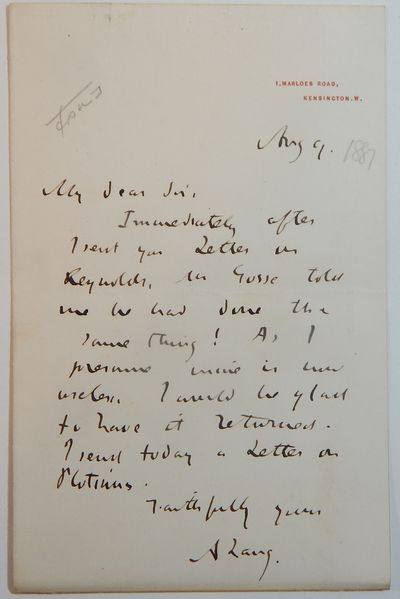 1, MARLOES ROAD,
KENSINGTON. W.
Aug 9. 1887
My dear Sir,
Immediately after
I sent you Letter on
Reynolds, Mr Gosse told
me he had done the
same thing! As I
presume mine is now
useless, I would be glad
to have it returned.
I send today a Letter on
Plotinus.
Faithfully yours
A Lang.